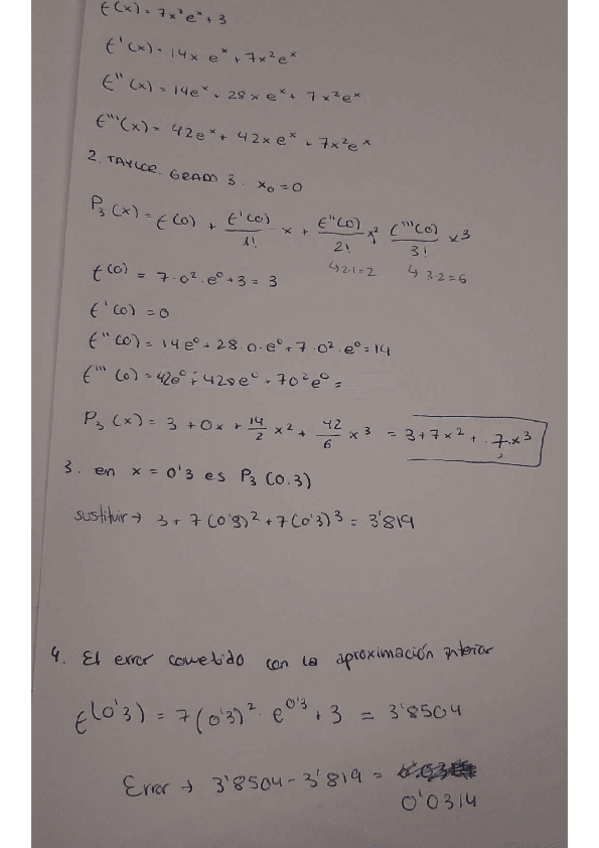 f(x) = 7x²eˣ + 3
f'(x) = 14x eˣ + 7x²eˣ
f''(x) = 14eˣ + 28x eˣ + 7x²eˣ
f'''(x) = 42eˣ + 42x eˣ + 7x²eˣ
2. TAYLOR. GRADO 3. x₀ = 0
P₃(x) = f(0) + f'(0)/1! x + f''(0)/2! x² + f'''(0)/3! x³
↳ 2·1=2 ↳ 3·2=6
f(0) = 7·0²·e⁰ + 3 = 3
f'(0) = 0
f''(0) = 14e⁰ + 28·0·e⁰ + 7·0²·e⁰ = 14
f'''(0) = 42e⁰ + 42·0e⁰ + 7·0²e⁰ =
P₃(x) = 3 + 0x + 14/2 x² + 42/6 x³ = 3 + 7x² + 7x³
3. en x = 0'3 es P₃(0.3)
sustituir → 3 + 7(0'3)² + 7(0'3)³ = 3'819
4. El error cometido con la aproximación anterior
f(0'3) = 7(0'3)²·e^0'3 + 3 = 3'8504
Error → 3'8504 - 3'819 =
0'0314